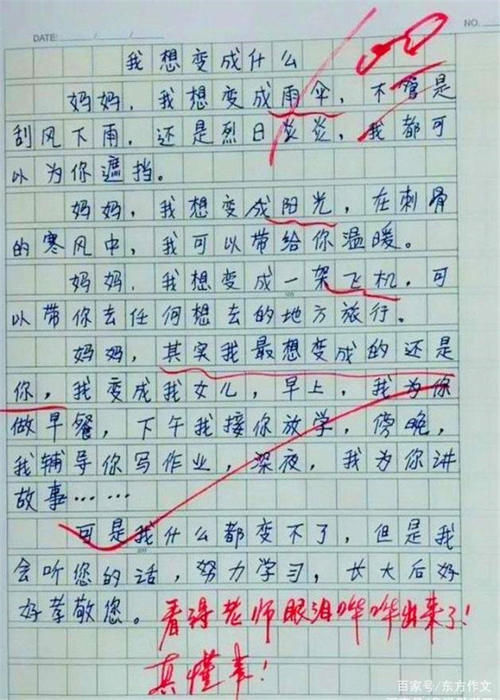 DATE: / /
NO.
我想变成什么
妈妈,我想变成雨伞,不管是
刮风下雨,还是烈日炎炎,我都可
以为你遮挡。
妈妈,我想变成阳光,在刺骨
的寒风中,我可以带给你温暖。
妈妈,我想变成一架飞机,可
以带你去任何想去的地方旅行。
妈妈,其实我最想变成的还是
你,我变成我女儿,早上,我为你
做早餐,下午我接你放学,傍晚,
我辅导你写作业,深夜,我为你讲
故事……
可是我什么都变不了,但是我
会听您的话,努力学习,长大后好
好孝敬您。看得老师眼泪哗哗出来了!
真懂事!
百家号/东方作文